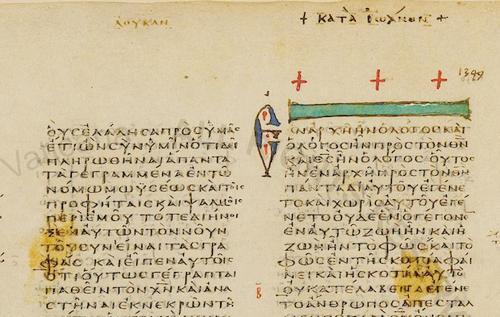 ΛΟΥΚΑΝ
+ ΚΑΤΑ ΙΩΑΝΟΝ +
1349
ΟΥϹΕΛΑΛΗϹΑΠΡΟϹΥΜΑϹ
ΕΤΙΩΝϹΥΝΥΜΙΝΟΤΙΔΕΙ
ΠΛΗΡΩΘΗΝΑΙΠΑΝΤΑ
ΤΑΓΕΓΡΑΜΜΕΝΑΕΝΤΩ
ΝΟΜΩΜΩΥϹΕΩϹΚΑΙΤΟΙϹ
ΠΡΟΦΗΤΑΙϹΚΑΙΨΑΛΜΟΙϹ
ΠΕΡΙΕΜΟΥΤΟΤΕΔΙΗΝΟΙ
ΞΕΝΑΥΤΩΝΤΟΝΝΟΥΝ
ΤΟΥϹΥΝΕΙΝΑΙΤΑϹΓΡΑ
ΦΑϹ ΚΑΙΕΙΠΕΝΑΥΤΟΙϹ
ΟΤΙΟΥΤΩϹΓΕΓΡΑΠΤΑΙ
ΠΑΘΕΙΝΤΟΝΧΝΚΑΙΑΝΑ
ϹΤΗΝΑΙΕΚΝΕΚΡΩΝΤΗ
ΕΝΑΡΧΗΗΝΟΛΟΓΟϹΚΑΙΟ
ΛΟΓΟϹΗΝΠΡΟϹΤΟΝΘΝ
ΚΑΙΘϹΗΝΟΛΟΓΟϹΟΥΤΟϹ
ΗΝΕΝΑΡΧΗΠΡΟϹΤΟΝΘΝ
ΠΑΝΤΑΔΙΑΥΤΟΥΕΓΕΝΕ
ΤΟΚΑΙΧΩΡΙϹΑΥΤΟΥΕΓΕ
ΝΕΤΟΟΥΔΕΕΝΟΓΕΓΟΝΕΝ
ΕΝΑΥΤΩΖΩΗΗΝΚΑΙΗ
ΖΩΗΗΝΤΟΦΩϹΚΑΙΤΟ
ΦΩϹΕΝΤΗϹΚΟΤΙΑΦΑΙ
ΝΕΙΚΑΙΗϹΚΟΤΙΑΑΥΤΟ
ΟΥΚΑΤΕΛΑΒΕΝΕΓΕΝΕ
ΤΟΑΝΘΡΩΠΟϹΑΠΕϹΤΑΛ